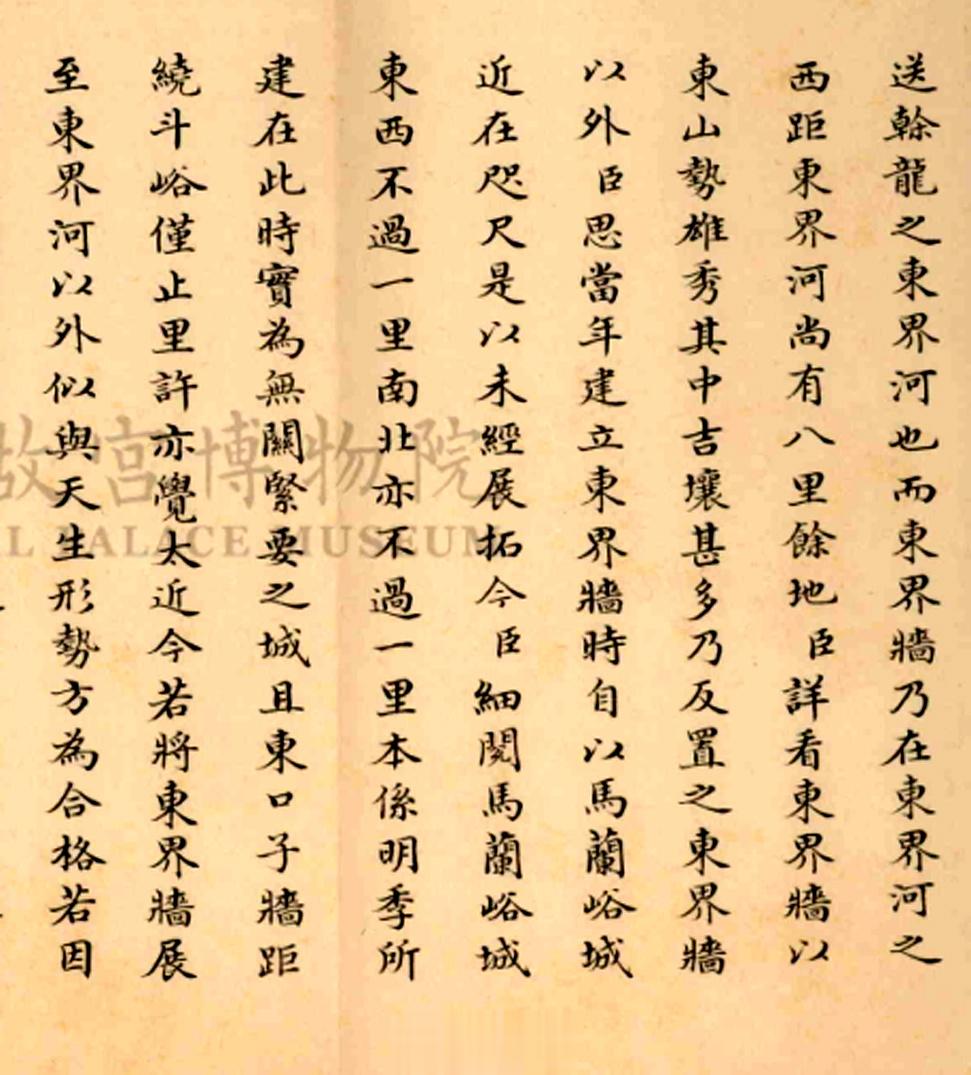 送榦龍之東界河也而東界牆乃在東界河之
西距東界河尚有八里餘地臣詳看東界牆以
東山勢雄秀其中吉壤甚多乃反置之東界牆
以外臣思當年建立東界牆時自以馬蘭峪城
近在咫尺是以未經展拓今臣細閱馬蘭峪城
東西不過一里南北亦不過一里本係明季所
建在此時實為無關緊要之城且東口子牆距
繞斗峪僅止里許亦覺太近今若將東界牆展
至東界河以外似與天生形勢方為合格若因
故宮博物院
L PALACE MUSEUM